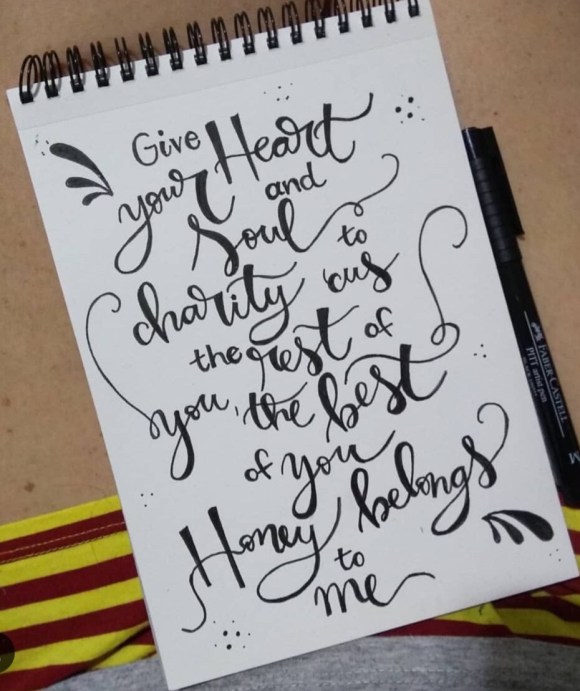 Give
your Heart
and
Soul
to
charity 'cus
the rest of
you, the best
of you
Honey belongs
to
me
FABER-CASTELL
PITT artist pen
M